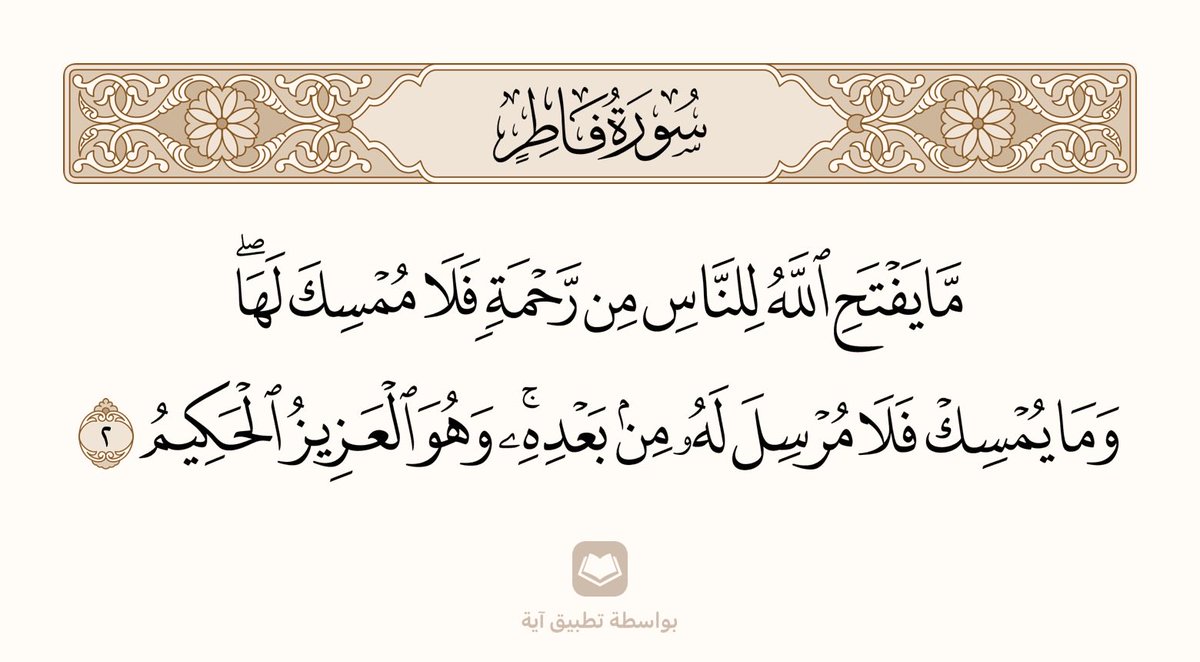 سُورَةُ فَاطِرٍ
مَّا يَفْتَحِ ٱللَّهُ لِلنَّاسِ مِن رَّحْمَةٍ فَلَا مُمْسِكَ لَهَاۖ
وَمَا يُمْسِكْ فَلَا مُرْسِلَ لَهُۥ مِنۢ بَعْدِهِۦۚ وَهُوَ ٱلْعَزِيزُ ٱلْحَكِيمُ ٢
بواسطة تطبيق آية